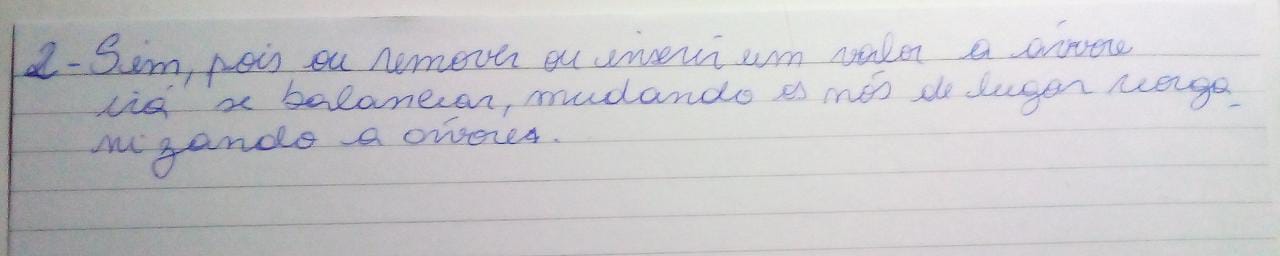 2- Sim, pois ou remover ou inserir um valor a árvore
irá se balancear, mudando os nós de lugar reorga_
nizando a árvores.